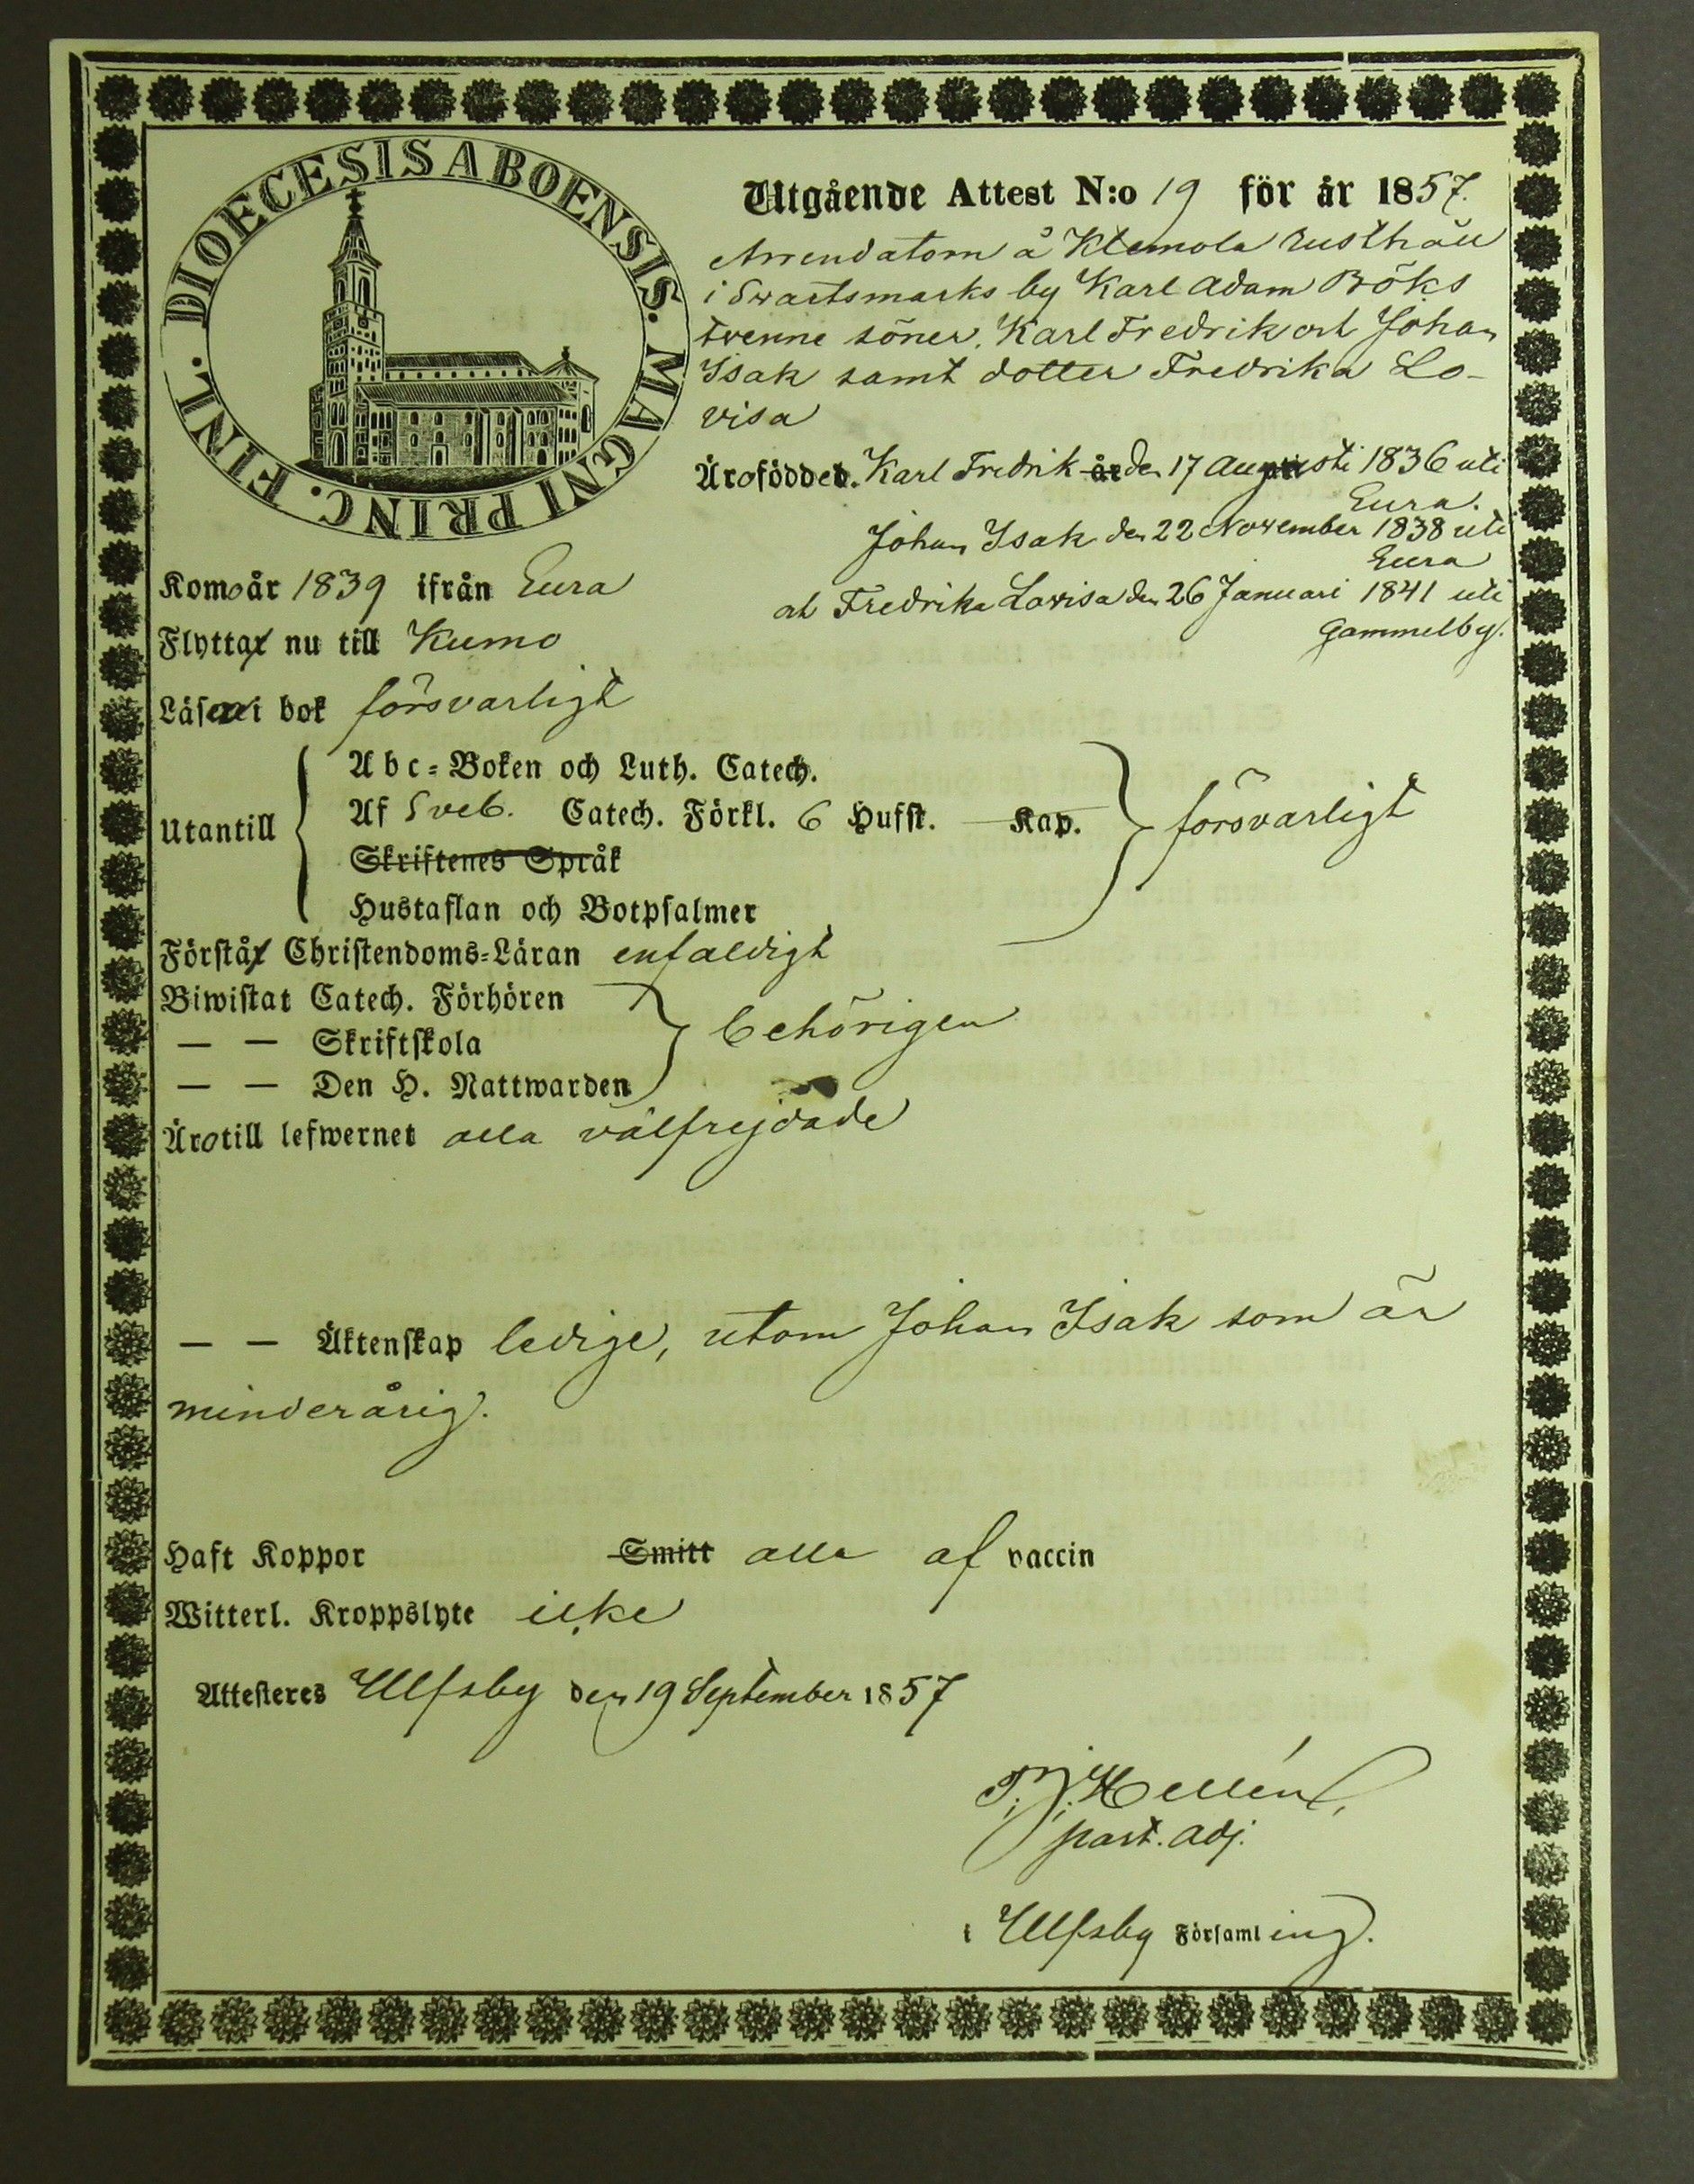 DIOECESIS ABOENSIS. MAGNI PRINC. FINL.
Utgående Attest N:o 19 för år 1857.
Arrendatorn å Klemola Rusthåll
i Svartsmarks by Karl Adam Böks
tvenne söner, Karl Fredrik och Johan
Isak samt dotter Fredrika Lo-
visa
Äro födde. Karl Fredrik den 17 Augusti 1836 uti
Eura.
Johan Isak den 22 November 1838 uti
Eura
och Fredrika Lovisa den 26 Januari 1841 uti
Gammelby.
Komo år 1839 ifrån Eura
Flytta nu till Kumo
Läsa i bok försvarligt
Utantill
Abc-Boken och Luth. Catech.
Af Sveb. Catech. Förkl. 6 Hufst. Kap. försvarligt
Skriftenes Språk
Hustaflan och Botpsalmer
Förstå Christendoms-Läran enfaldigt
Biwistat Catech. Förhören
— — Skriftskola behörigen
— — Den H. Nattwarden
Äro till lefwernet alla välfrejdade
— — Äktenskap ledige, utom Johan Isak som är
minderårig.
Haft Koppor Smitt alla af vaccin
Witterl. Kroppslyte icke
Attesteres Ulfsby den 19 September 1857
Hellén,
past. adj.
i Ulfsby Församling.